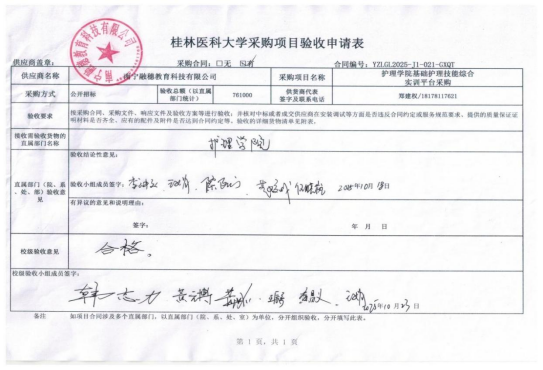 桂林医科大学采购项目验收申请表
供应商盖章： 采购合同：□无 ☑有 合同编号：YZLGL2025-J1-021-GXQT
供应商名称 南宁融穗教育科技有限公司 采购项目名称 护理学院基础护理技能综合实训平台采购
采购方式 公开招标 验收总额（以直属部门统计） 761000 供货商代表签字及联系电话 郑建权/18178117021
验收要求 按采购合同、采购文件、响应文件及验收方案等进行验收；并核对中标或者成交供应商在安装调试等方面是否违反合同约定或服务规范要求、提供的质量保证证明材料是否齐全、应有的配件及附件是否达到合同约定等。验收的详细货物清单见附表。
接收需验收货物的直属部门名称 护理学院
直属部门（院、系、处、部）验收意见
验收结论性意见：
验收小组成员签字： 2025年10月18日
有异议的意见和说明理由：
签字： 年 月 日
校级验收意见 合格。
校级验收小组成员签字：
韩志力 2025年10月23日
备注 如项目合同涉及多个直属部门，以直属部门（院、系、处、室）为单位，分开组织验收，分开填写此表。
第 1 页，共 1 页